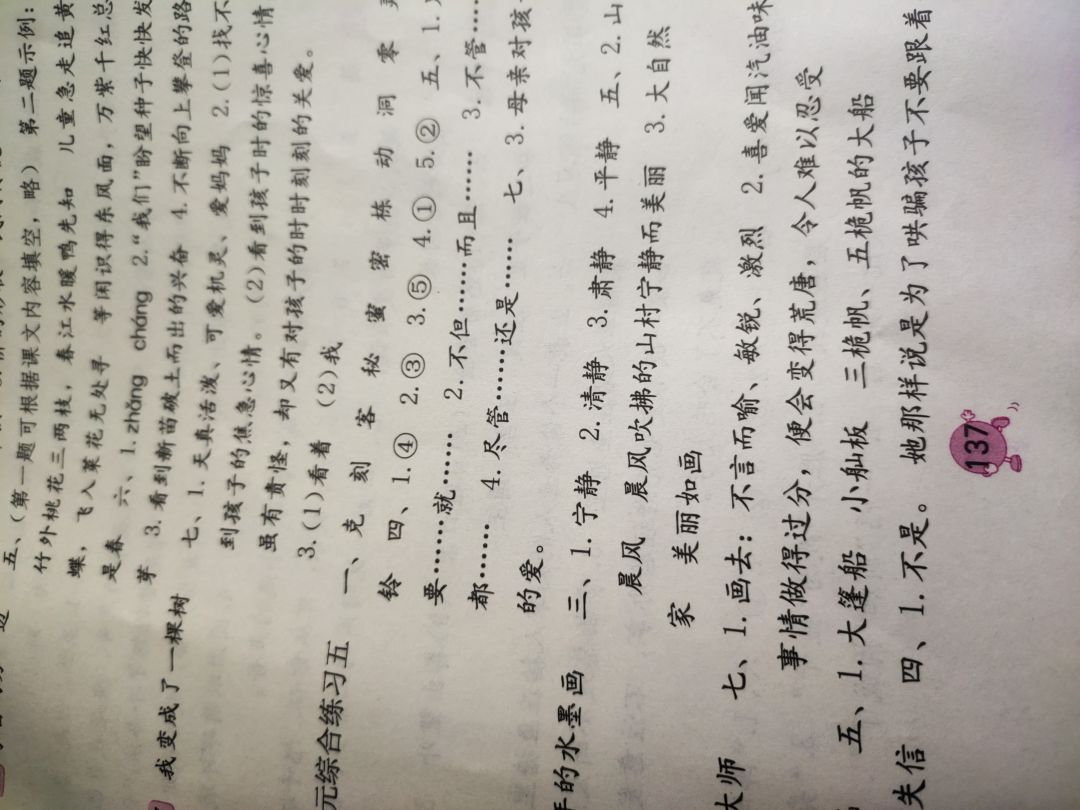 五、(第一题可根据课文内容填空，略) 第二题示例：
竹外桃花三两枝，春江水暖鸭先知 儿童急走追黄
蝶，飞入菜花无处寻 等闲识得东风面，万紫千红总
是春 六、1. zhǎng cháng 2.“我们”盼望种子快快发
芽 3. 看到新苗破土而出的兴奋 4. 不断向上攀登的路
我变成了一棵树 七、1. 天真活泼、可爱机灵、爱妈妈 2. (1)找不
到孩子的焦急心情。(2)看到孩子时的惊喜心情
虽有责怪，却又有对孩子的时时刻刻的关爱。
3. (1)看着 (2)我
元综合练习五 一、克 刻 客 秘 蜜 密 栋 动 洞 零
铃 四、1. ④ 2. ③ 3. ⑤ 4. ① 5. ② 五、1.
要……就…… 2. 不但……而且…… 3. 不管……
都…… 4. 尽管……还是…… 七、3. 母亲对孩
的爱。
的水墨画 三、1. 宁静 2. 清静 3. 肃静 4. 平静 五、2. 山
晨风 晨风吹拂的山村宁静而美丽 3. 大自然
家 美丽如画
大师 七、1. 画去：不言而喻、敏锐、激烈 2. 喜爱闻汽油味
事情做得过分，便会变得荒唐，令人难以忍受
五、1. 大篷船 小舢板 三桅帆、五桅帆的大船
失信 四、1. 不是。她那样说是为了哄骗孩子不要跟着
137